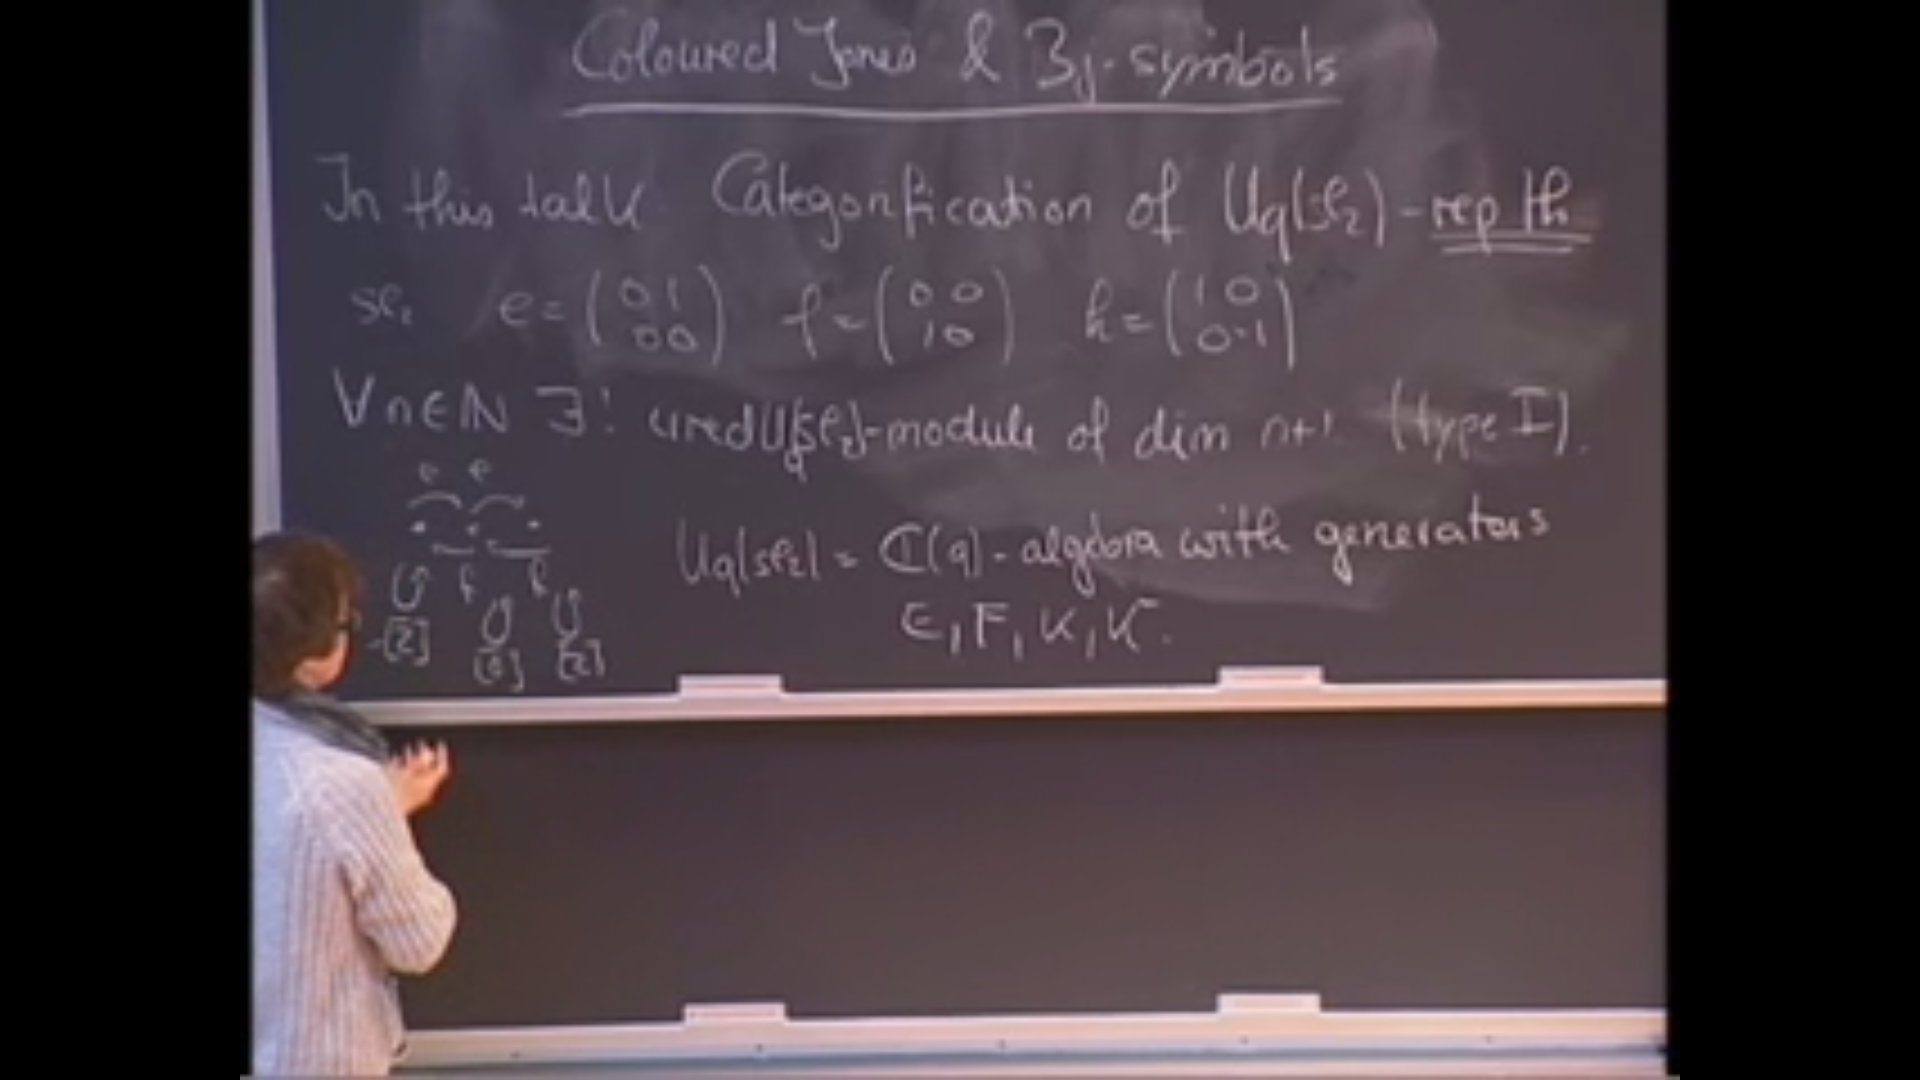 Coloured Jones & 3j-symbols
In this talk Categorification of Uq(sl₂)-rep th
sl₂ e = (0 1 00) f = (0 0 1 0) h = (1 0 0 -1)
∀n∈ℕ ∃! irred Uq(sl₂)-module of dim n+1 (type I).
e e
f f
-[2] [0] [2]
Uq(sl₂) = ℂ(q)-algebra with generators
E, F, K, K⁻.